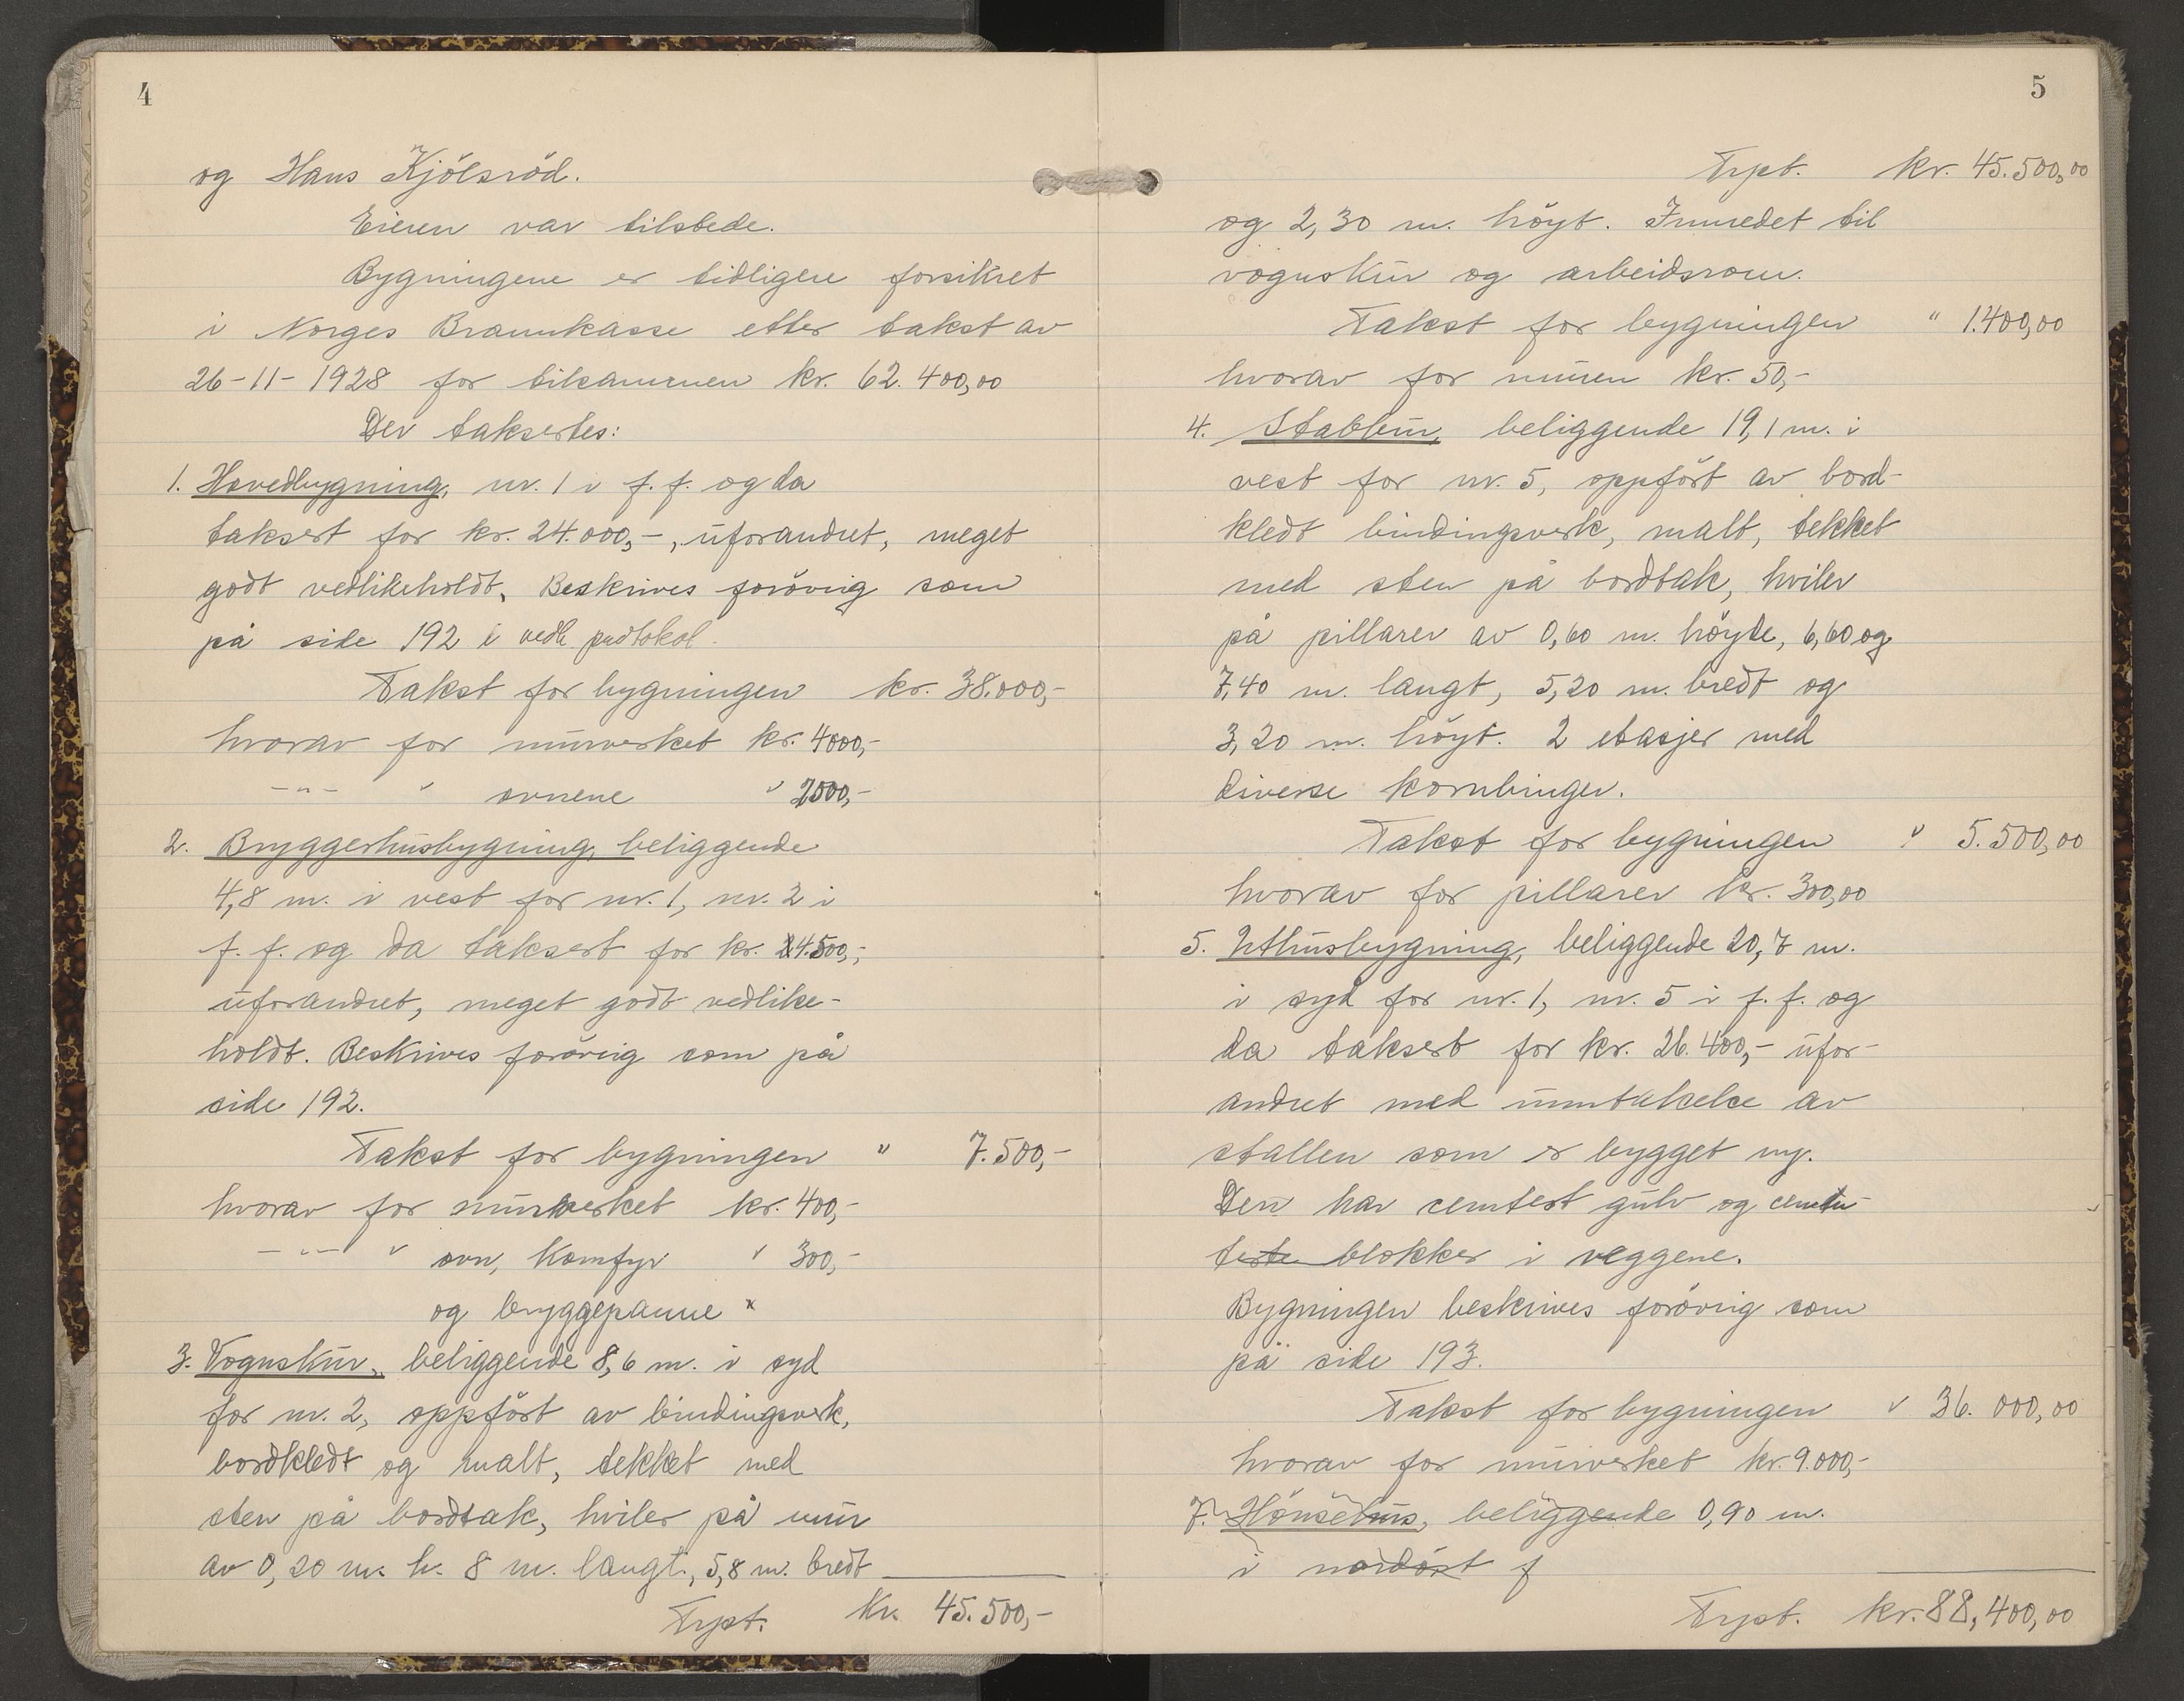 4
og Hans Kjölsröd.
Eieren var tilstede.
Bygningene er tidligere forsikret
i Norges Brannkasse etter takst av
26-11-1928 for tilsammen kr. 62.400,00
Der taksertes:
1. Hovedbygning, nr. 1 i f. f. og da
taksert for kr. 24.000,-, uforandret, meget
godt vedlikeholdt. Beskrives forövrig som
på side 192 i vedl. protokol.
Takst for bygningen kr. 38.000,-
hvorav for murverket kr. 4000,-
-"- " ovnene " 2500,-
2. Bryggerhusbygning, beliggende
4,8 m. i vest for nr. 1, nr. 2 i
f. f. og da taksert for kr. 4.500,-,
uforandret, meget godt vedlike-
holdt. Beskrives forövrig som på
side 192.
Takst for bygningen " 7.500,-
hvorav for murverket kr. 400,-
-"- " ovn, komfyr " 300,-
og bryggepanne "
3. Vognskur, beliggende 8,6 m. i syd
for nr. 2, oppfört av bindingsverk,
bordkledt og malt, tekket med
sten på bordtak, hviler på mur
av 0,20 m. h. 8 m. langt, 5,8 m. bredt
Trpt. Kr. 45.500,-
5
Trpt. kr. 45.500,00
og 2,30 m. höyt. Innredet til
vognskur og arbeidsrom.
Takst for bygningen " 1.400,00
hvorav for muren kr. 50,-
4. Stabbur, beliggende 19,1 m. i
vest for nr. 5, oppfört av bord-
kledt bindingsverk, malt, tekket
med sten på bordtak, hviler
på pillarer av 0,60 m. höyde, 6,60 og
7,40 m. langt, 5,20 m. bredt og
3,20 m. höyt. 2 etasjer med
diverse kornbinger.
Takst for bygningen " 5.500,00
hvorav for pillarer kr. 300,00
5. Uthusbygning, beliggende 20,7 m.
i syd for nr. 1, nr. 5 i f. f. og
da taksert for kr. 26.400,- ufor-
andret med unntakelse av
stallen som er bygget ny.
Den har cemtert gulv og cement-
terte blokker i veggene.
Bygningen beskrives forövrig som
på side 193.
Takst for bygningen " 36.000,00
hvorav for murverket kr. 9.000,-
7. Hönsehus, beliggende 0,90 m.
i nordöst f
Trpt. kr. 88,400,00